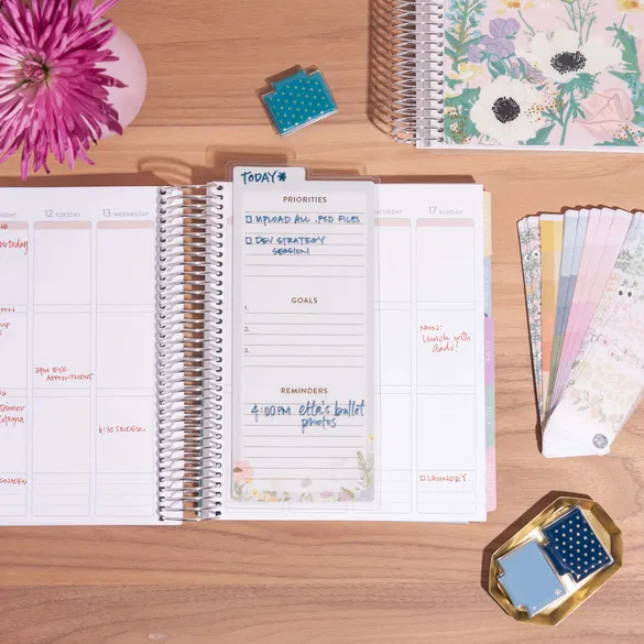 12 TUESDAY
13 WEDNESDAY
7PM EYE
APPOINTMENT
6:30 SOCCER
TODAY*
PRIORITIES
UPLOAD ALL .PSD FILES
DEV STRATEGY
SESSION
GOALS
1.
2.
3.
REMINDERS
4:00PM etta's ballet
photos
SATURDAY
17 SUNDAY
NOON:
lunch with
LAUNDRY